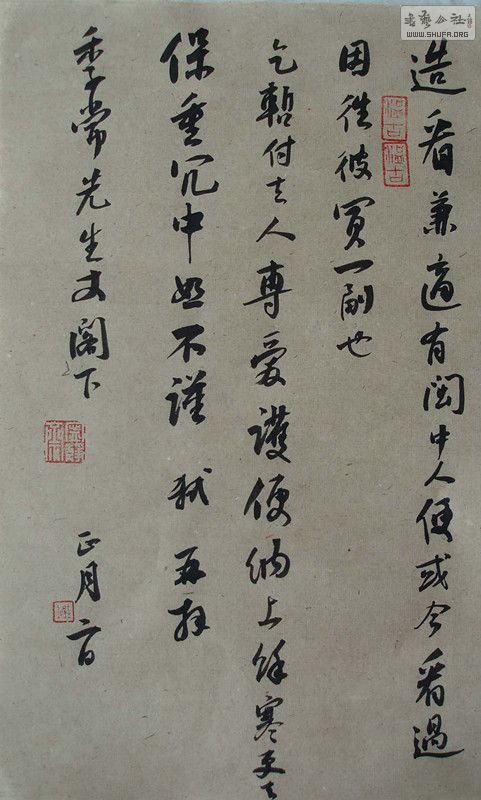 書藝公社
WWW.SHUFA.ORG
造看兼適有閩中人便或令看過
因往彼買一副也
乞暫付去人專愛護便納上餘寒更乞
保重冗中恕不謹 軾 再拜
季常先生丈閣下
正月二日